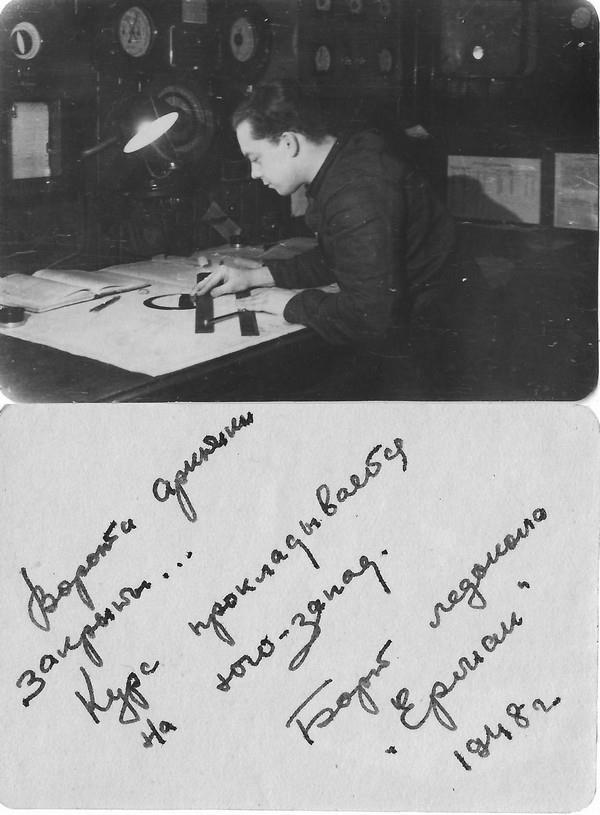 Ворота Арктики
закрыты...
Курс прокладывается
на юго-запад.
Борт ледокола
"Ермак"
1948 г.